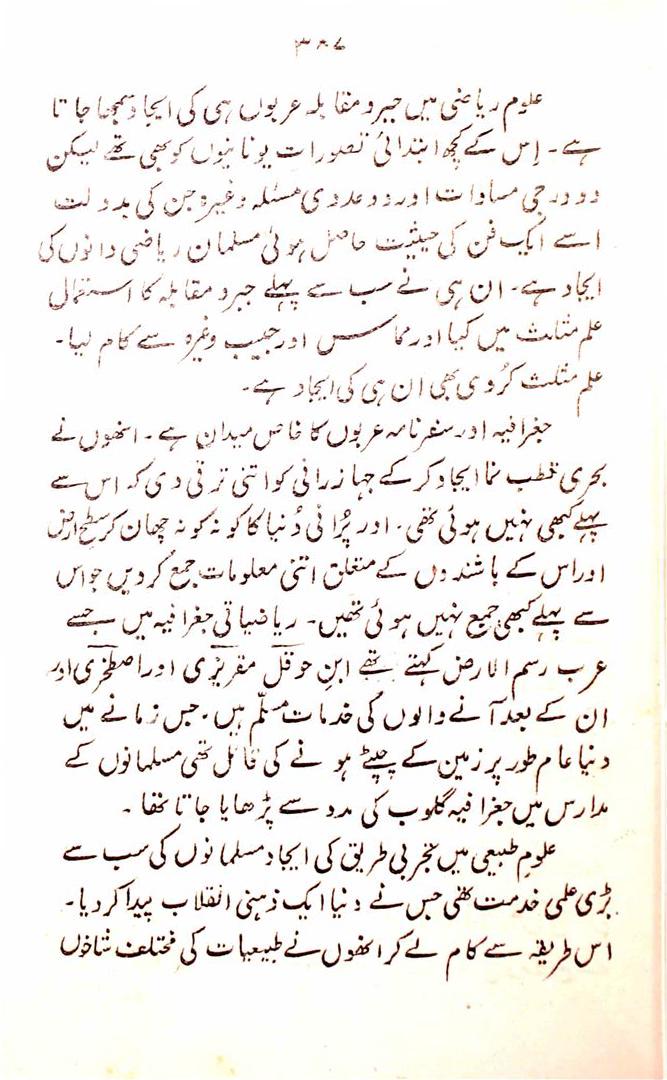 ۳۸۷
علوم ریاضی میں جبر و مقابلہ عربوں ہی کی ایجاد سمجھا جاتا
ہے۔ اِس کے کچھ ابتدائی تصورات یونانیوں کو بھی تھے لیکن
دو درجی مساوات اور دو عددی مسئلہ وغیرہ جن کی بدولت
اسے ایک فن کی حیثیت حاصل ہوئی مسلمان ریاضی دانوں کی
ایجاد ہے۔ ان ہی نے سب سے پہلے جبر و مقابلہ کا استعمال
علم مثلث میں کیا اور مماس اور جیب وغیرہ سے کام لیا۔
علم مثلث کُروی بھی ان ہی کی ایجاد ہے۔
جغرافیہ اور سفرنامہ عربوں کا خاص میدان ہے۔ انھوں نے
بحری قطب نما ایجاد کر کے جہازرانی کو اتنی ترقی دی کہ اس سے
پہلے کبھی نہیں ہوئی تھی۔ اور پُرانی دُنیا کا کونہ کونہ چھان کر سطح ارض
اور اس کے باشندوں کے متعلق اتنی معلومات جمع کر دیں جو اس
سے پہلے کبھی جمع نہیں ہوئی تھیں۔ ریاضیاتی جغرافیہ میں جسے
عرب رسم الارض کہتے تھے ابنِ حوقل مقریزی اور اصطخری اور
ان کے بعد آنے والوں کی خدمات مسلّم ہیں۔ جس زمانے میں
دنیا عام طور پر زمین کے چپٹے ہونے کی قائل تھی مسلمانوں کے
مدارس میں جغرافیہ گلوب کی مدد سے پڑھایا جاتا تھا۔
علوم طبیعی میں تجربی طریق کی ایجاد مسلمانوں کی سب سے
بڑی علمی خدمت تھی جس نے دنیا ایک ذہنی انقلاب پیدا کر دیا۔
اس طریقہ سے کام لے کر انھوں نے طبیعیات کی مختلف شاخوں